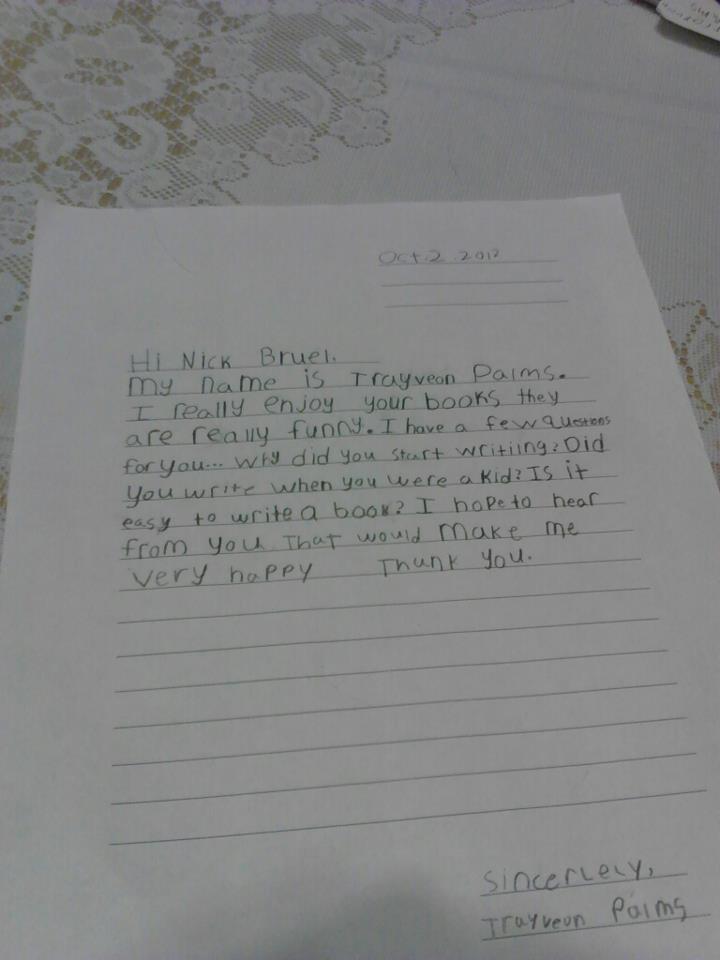 Oct.2.2012
Hi Nick Bruel.
My name is Trayveon Palms.
I really enjoy your books they
are really funny. I have a few questions
for you... why did you start writiing? Did
you write when you were a kid? Is it
easy to write a book? I hope to hear
from you. That would make me
very happy Thank you.
Sincerlely,
Trayveon Palms